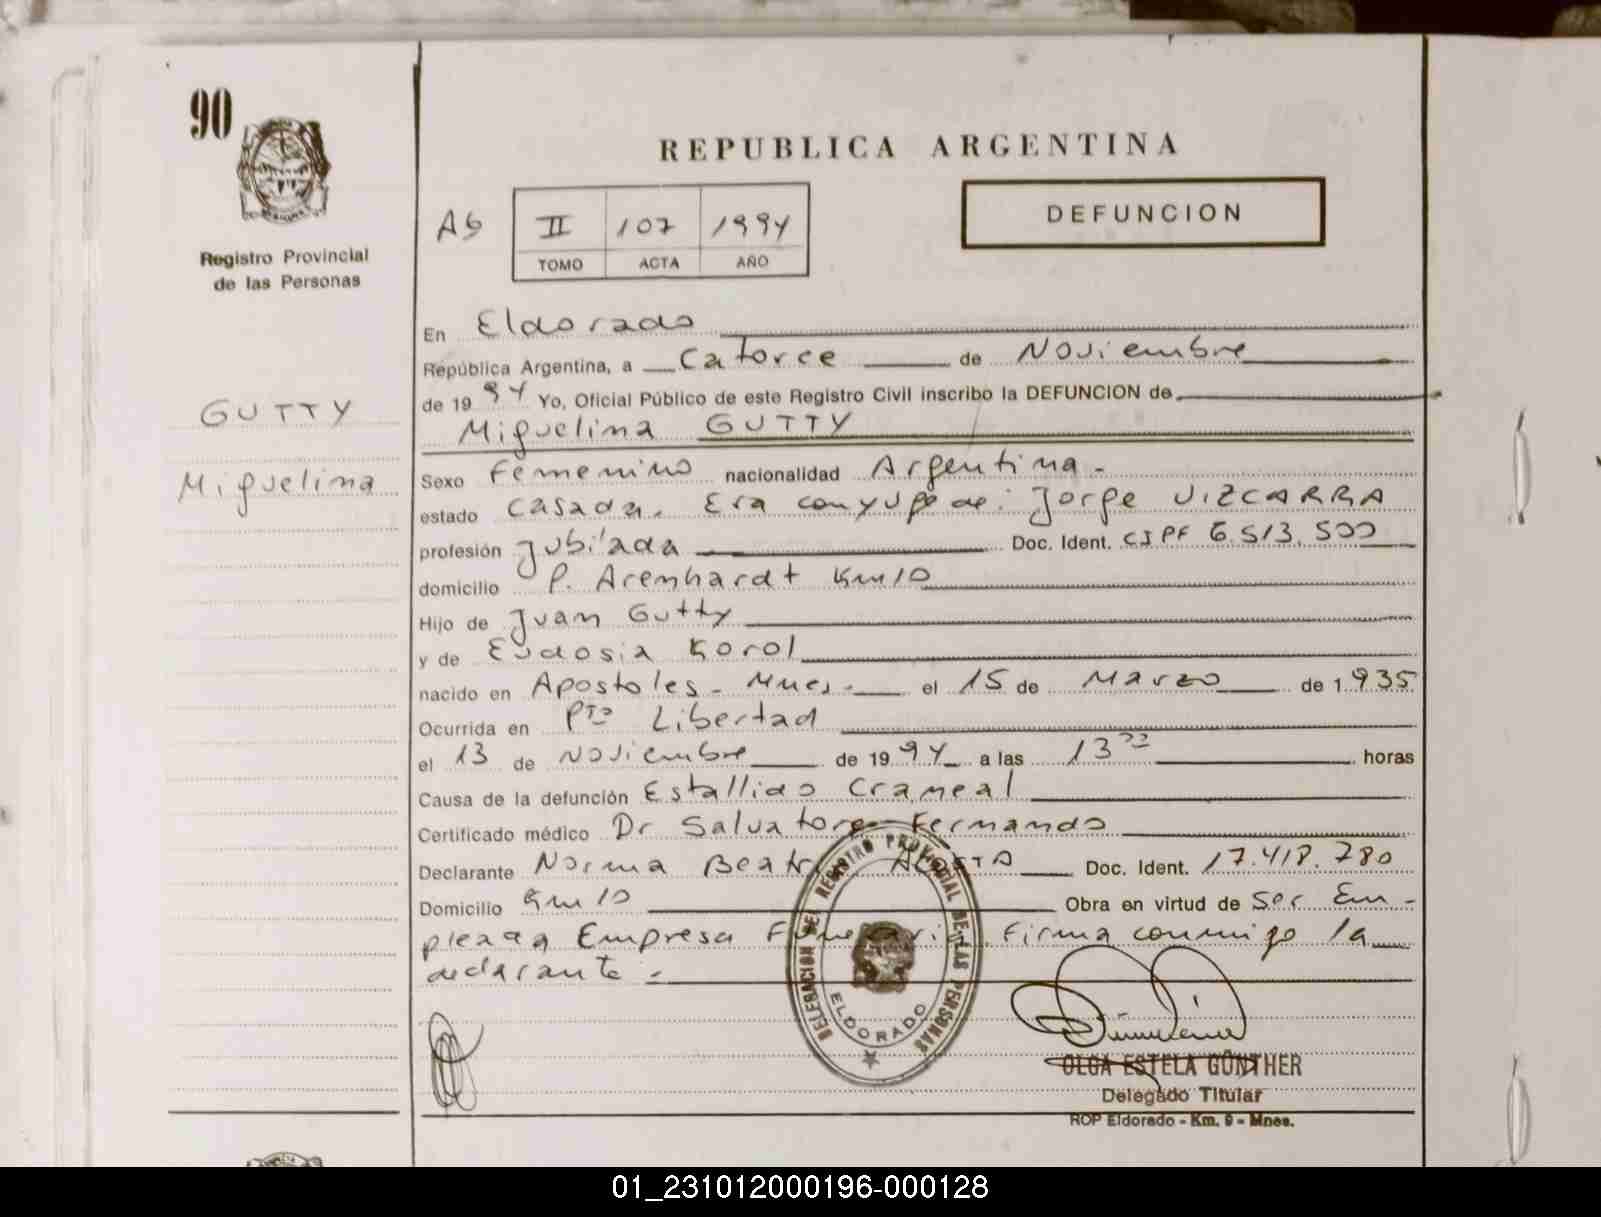 90
REPUBLICA ARGENTINA
Registro Provincial
de las Personas
II 107 1994
TOMO ACTA AÑO
DEFUNCION
GUTTY
Miguelina
En Eldorado
República Argentina, a Catorce de Noviembre
de 1994 Yo, Oficial Público de este Registro Civil inscribo la DEFUNCION de
Miguelina GUTTY
Sexo Femenino nacionalidad Argentina -
estado Casada. Era conyuge de: Jorge VIZCARRA
profesión Jubilada Doc. Ident. CIPF 6.513.500
domicilio P. Arenhardt Km 10
Hijo de Juan Gutty
y de Eudosia Korol
nacido en Apostoles - Mnes. el 15 de Marzo de 1.935
Ocurrida en Pto Libertad
el 13 de Noviembre de 1994 a las 13 00 horas
Causa de la defunción Estallido Craneal
Certificado médico Dr Salvatore Fernando
Declarante Norma Beatriz Doc. Ident. 17.418.780
Domicilio Km 10 Obra en virtud de ser Em-
pleada Empresa Funeraria. Firma conmigo la
declarante. -
DELEGACION DEL REGISTRO PROVINCIAL DE LAS PERSONAS
ELDORADO
OLGA ESTELA GÜNTHER
Delegado Titular
ROP Eldorado - Km. 9 - Mnes.
01_231012000196-000128